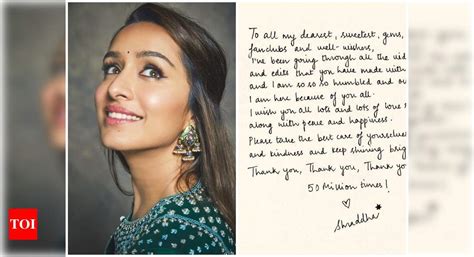 To all my dearest, sweetest, gems,
fanclubs and well-wishers,
I've been going through all the vid
and edits that you have made with
and I am so so so humbled and or
I am here because of you all.
I wish you all lots and lots of love
along with peace and happiness.
Please take the best care of yourselve
and kindness and keep shining brig
Thank you, Thank you, Thank yo
50 Million times!
Shraddha
TOI